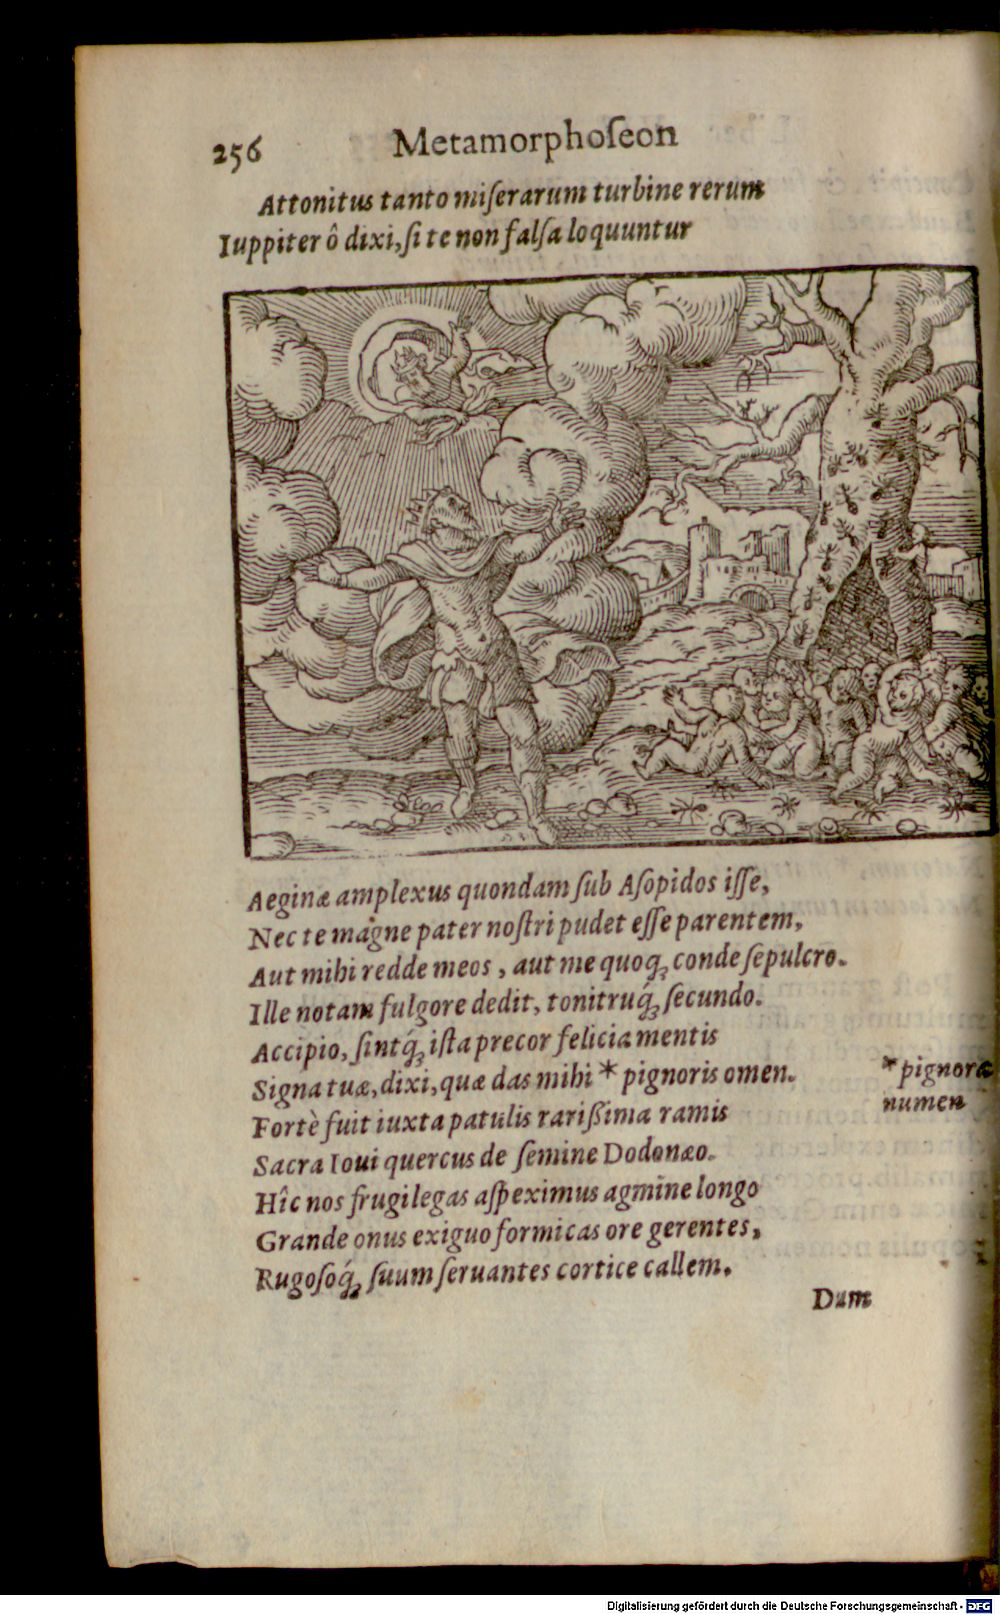 256 Metamorphoſeon
Attonitus tanto miſerarum turbine rerum
Iuppiter ô dixi, ſi te non falſa loquuntur
Aeginæ amplexus quondam ſub Aſopidos iſſe,
Nec te magne pater noſtri pudet eſſe parentem,
Aut mihi redde meos, aut me quoq; conde ſepulcro.
Ille notam fulgore dedit, tonitruq́; ſecundo.
Accipio, ſintq́; iſta precor felicia mentis
Signa tuæ, dixi, quæ das mihi * pignoris omen.
* pignora
numen
Fortè fuit iuxta patulis rariſsima ramis
Sacra Ioui quercus de ſemine Dodonæo.
Hîc nos frugilegas aſpeximus agmine longo
Grande onus exiguo formicas ore gerentes,
Rugoſoq́; ſuum ſeruantes cortice callem.
Dum
Digitalisierung gefördert durch die Deutsche Forschungsgemeinschaft - DFG